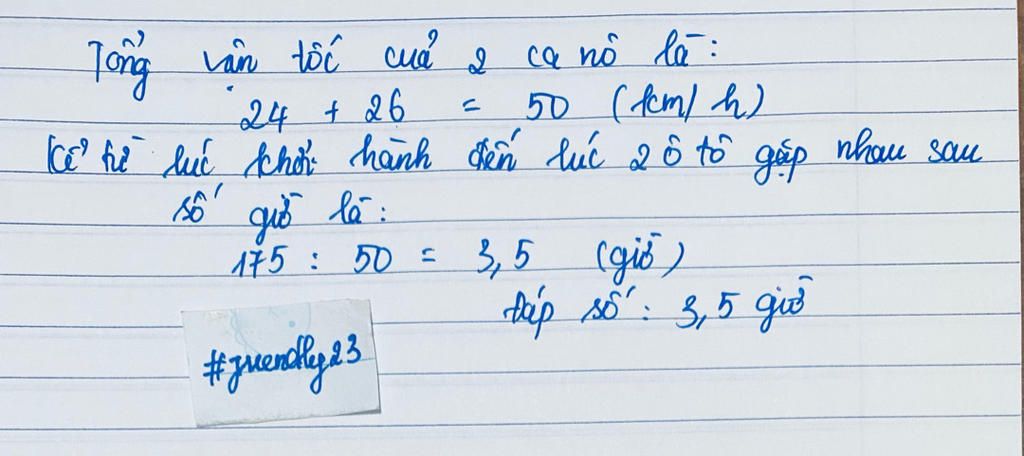 Tổng vận tốc cuả 2 ca nô là:
24 + 26 = 50 (km/h)
Kể từ lúc khởi hành đến lúc 2 ô tô gặp nhau sau
số giờ là:
175 : 50 = 3,5 (giờ)
Đáp số: 3,5 giờ
#friendly23